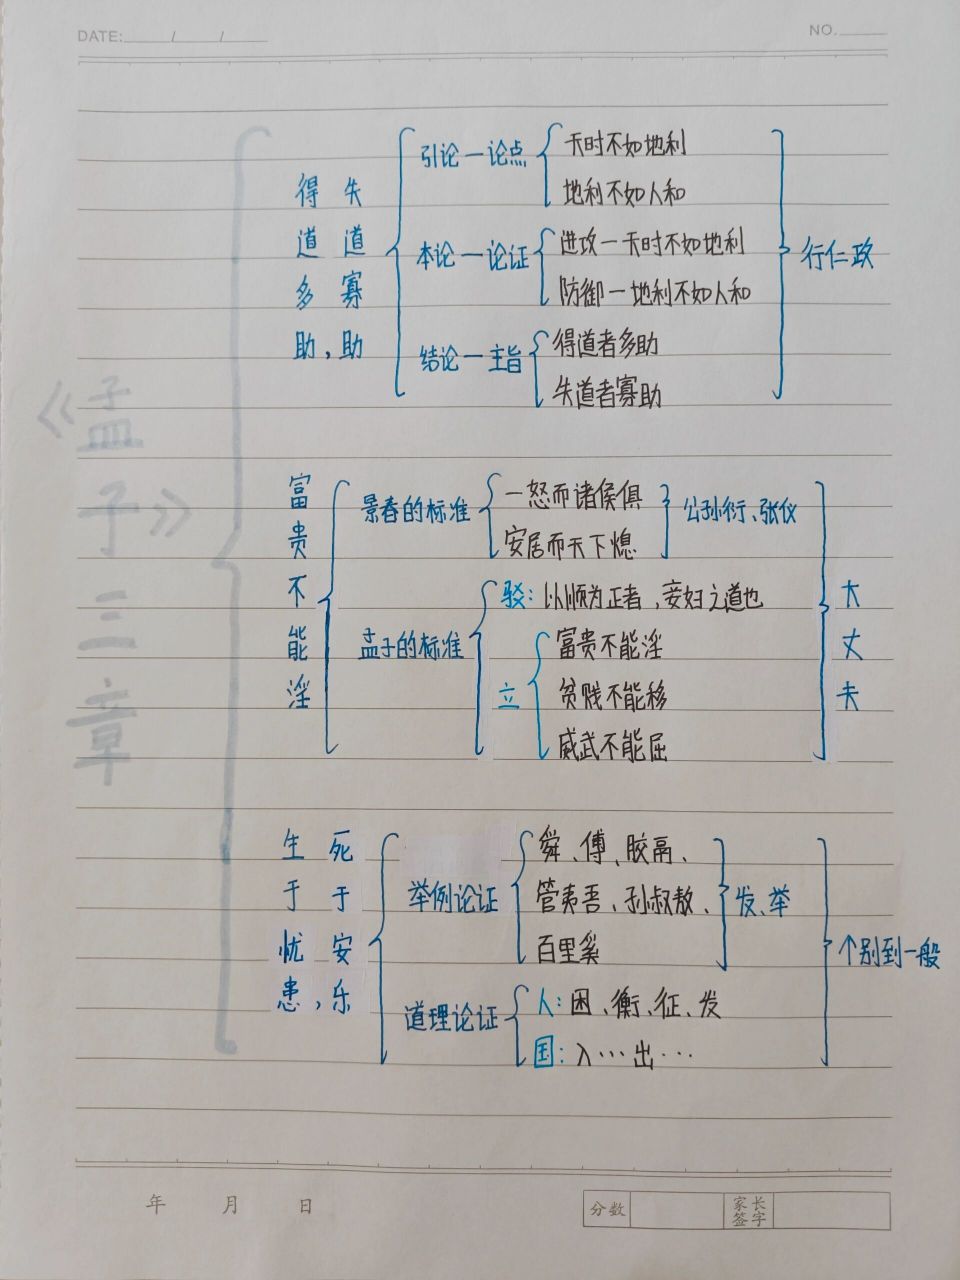 DATE: / /
NO.
《孟子》三章
得道多助,
失道寡助
引论—论点
天时不如地利
地利不如人和
本论—论证
进攻—天时不如地利
防御—地利不如人和
结论—主旨
得道者多助
失道者寡助
行仁政
富贵不能淫
景春的标准
一怒而诸侯俱
安居而天下熄
公孙衍、张仪
孟子的标准
驳:以顺为正者,妾妇之道也
立
富贵不能淫
贫贱不能移
威武不能屈
大丈夫
生于忧患,
死于安乐
举例论证
舜、傅、胶鬲、
管夷吾、孙叔敖、
百里奚
发、举
道理论证
人:困、衡、征、发
国:入…出…
个别到一般
年 月 日
分数
家长签字